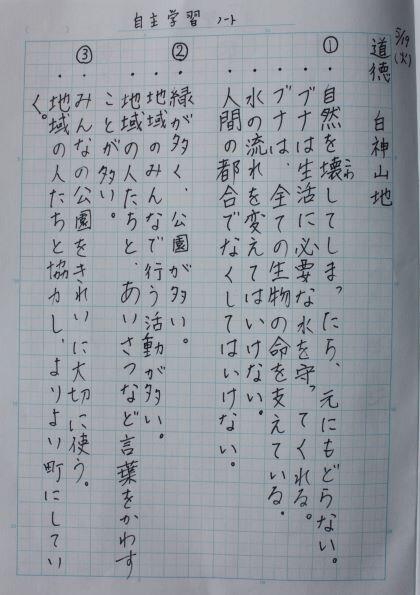 自主学習 ノート
5/19
(火)
道徳 白神山地
①
・自然を壊してしまったら、元にもどらない。
こわ
・ブナは生活に必要な水を守ってくれる。
・ブナは、全ての生物の命を支えている。
・水の流れを変えてはいけない。
・人間の都合でなくしてはいけない。
②
・緑が多く、公園が多い。
・地域のみんなで行う活動が多い。
・地域の人たちと、あいさつなど言葉をかわす
ことが多い。
③
・みんなの公園をきれいに大切に使う。
・地域の人たちと協力し、よりよい町にしてい
く。